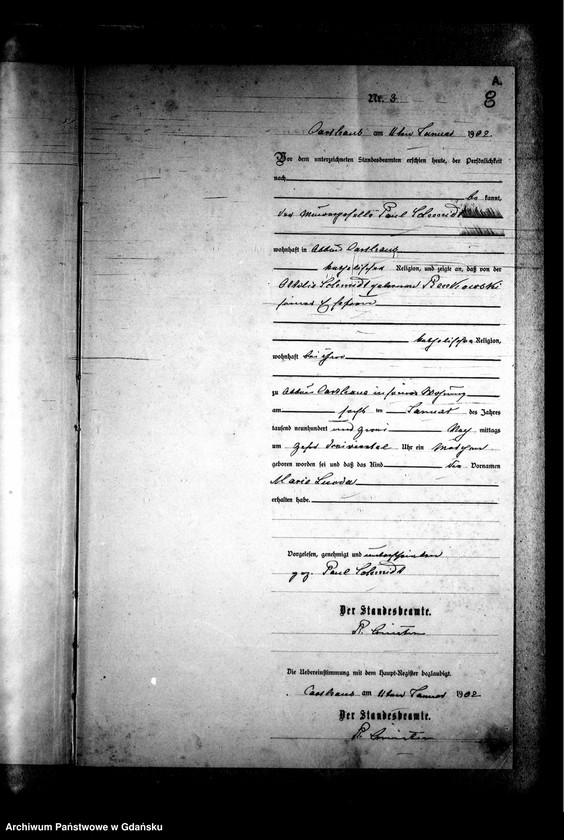 A.
Nr. 3
8
Carthaus am 11ten Januar 1902.
Vor dem unterzeichneten Standesbeamten erschien heute, der Persönlichkeit
nach
be kannt,
der Maurergeselle Paul Schmidt
wohnhaft in Abbau Carthaus
katholischer Religion, und zeigte an, daß von der
Ottilie Schmidt geborenen
seiner Ehefrau
katholischer Religion,
wohnhaft bei ihm
zu Abbau Carthaus in seiner Wohnung
am sechs ten Januar des Jahres
tausend neunhundert und zwei Nach mittags
um Uhr ein Mädchen
geboren worden sei und daß das Kind die Vornamen
Maria
erhalten habe.
Vorgelesen, genehmigt und unterschrieben
gez. Paul Schmidt
Der Standesbeamte.
Die Uebereinstimmung mit dem Haupt-Register beglaubigt.
Carthaus am 11ten Januar 1902
Der Standesbeamte.
Archiwum Państwowe w Gdańsku